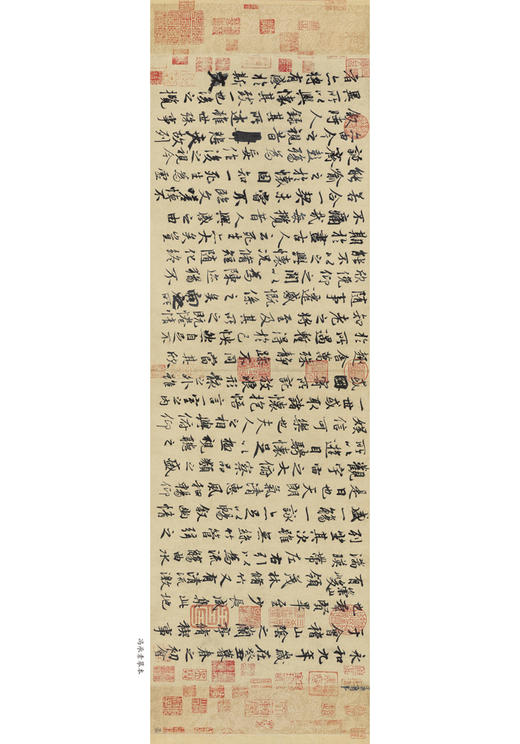 永和九年歲在癸丑暮春之初會
于會稽山陰之蘭亭脩稧事
也羣賢畢至少長咸集此地
有崇山峻領茂林脩竹又有清流激
湍暎帶左右引以為流觴曲水
列坐其次雖無絲竹管弦之
盛一觴一詠亦足以暢叙幽情
是日也天朗氣清惠風和暢仰
觀宇宙之大俯察品類之盛
所以遊目騁懷足以極視聽之
娛信可樂也夫人之相與俯仰
一世或取諸懷抱悟言一室之內
或因寄所託放浪形骸之外雖
趣舍萬殊靜躁不同當其欣
於所遇蹔得於己怏然自足不
知老之將至及其所之既惓情
隨事遷感慨係之矣向之所
欣俛仰之閒以為陳迹猶不
能不以之興懷況脩短隨化終
期於盡古人云死生亦大矣豈
不痛哉每攬昔人興感之由
若合一契未嘗不臨文嗟悼不
能喻之於懷固知一死生為虛
誕齊彭殤為妄作後之視今
亦由今之視昔悲夫故列
敘時人錄其所述雖世殊事
異所以興懷其致一也後之攬
者亦將有感於斯文
冯承素摹本